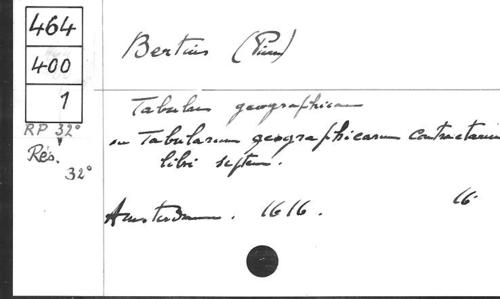 464
400
1
RP 32°
Rés.
32°
Bertius (Pierre)
Tabulae geographicae
ou Tabularum geographicarum contractarum
libri septem.
Amsterdam. 1616. 16°